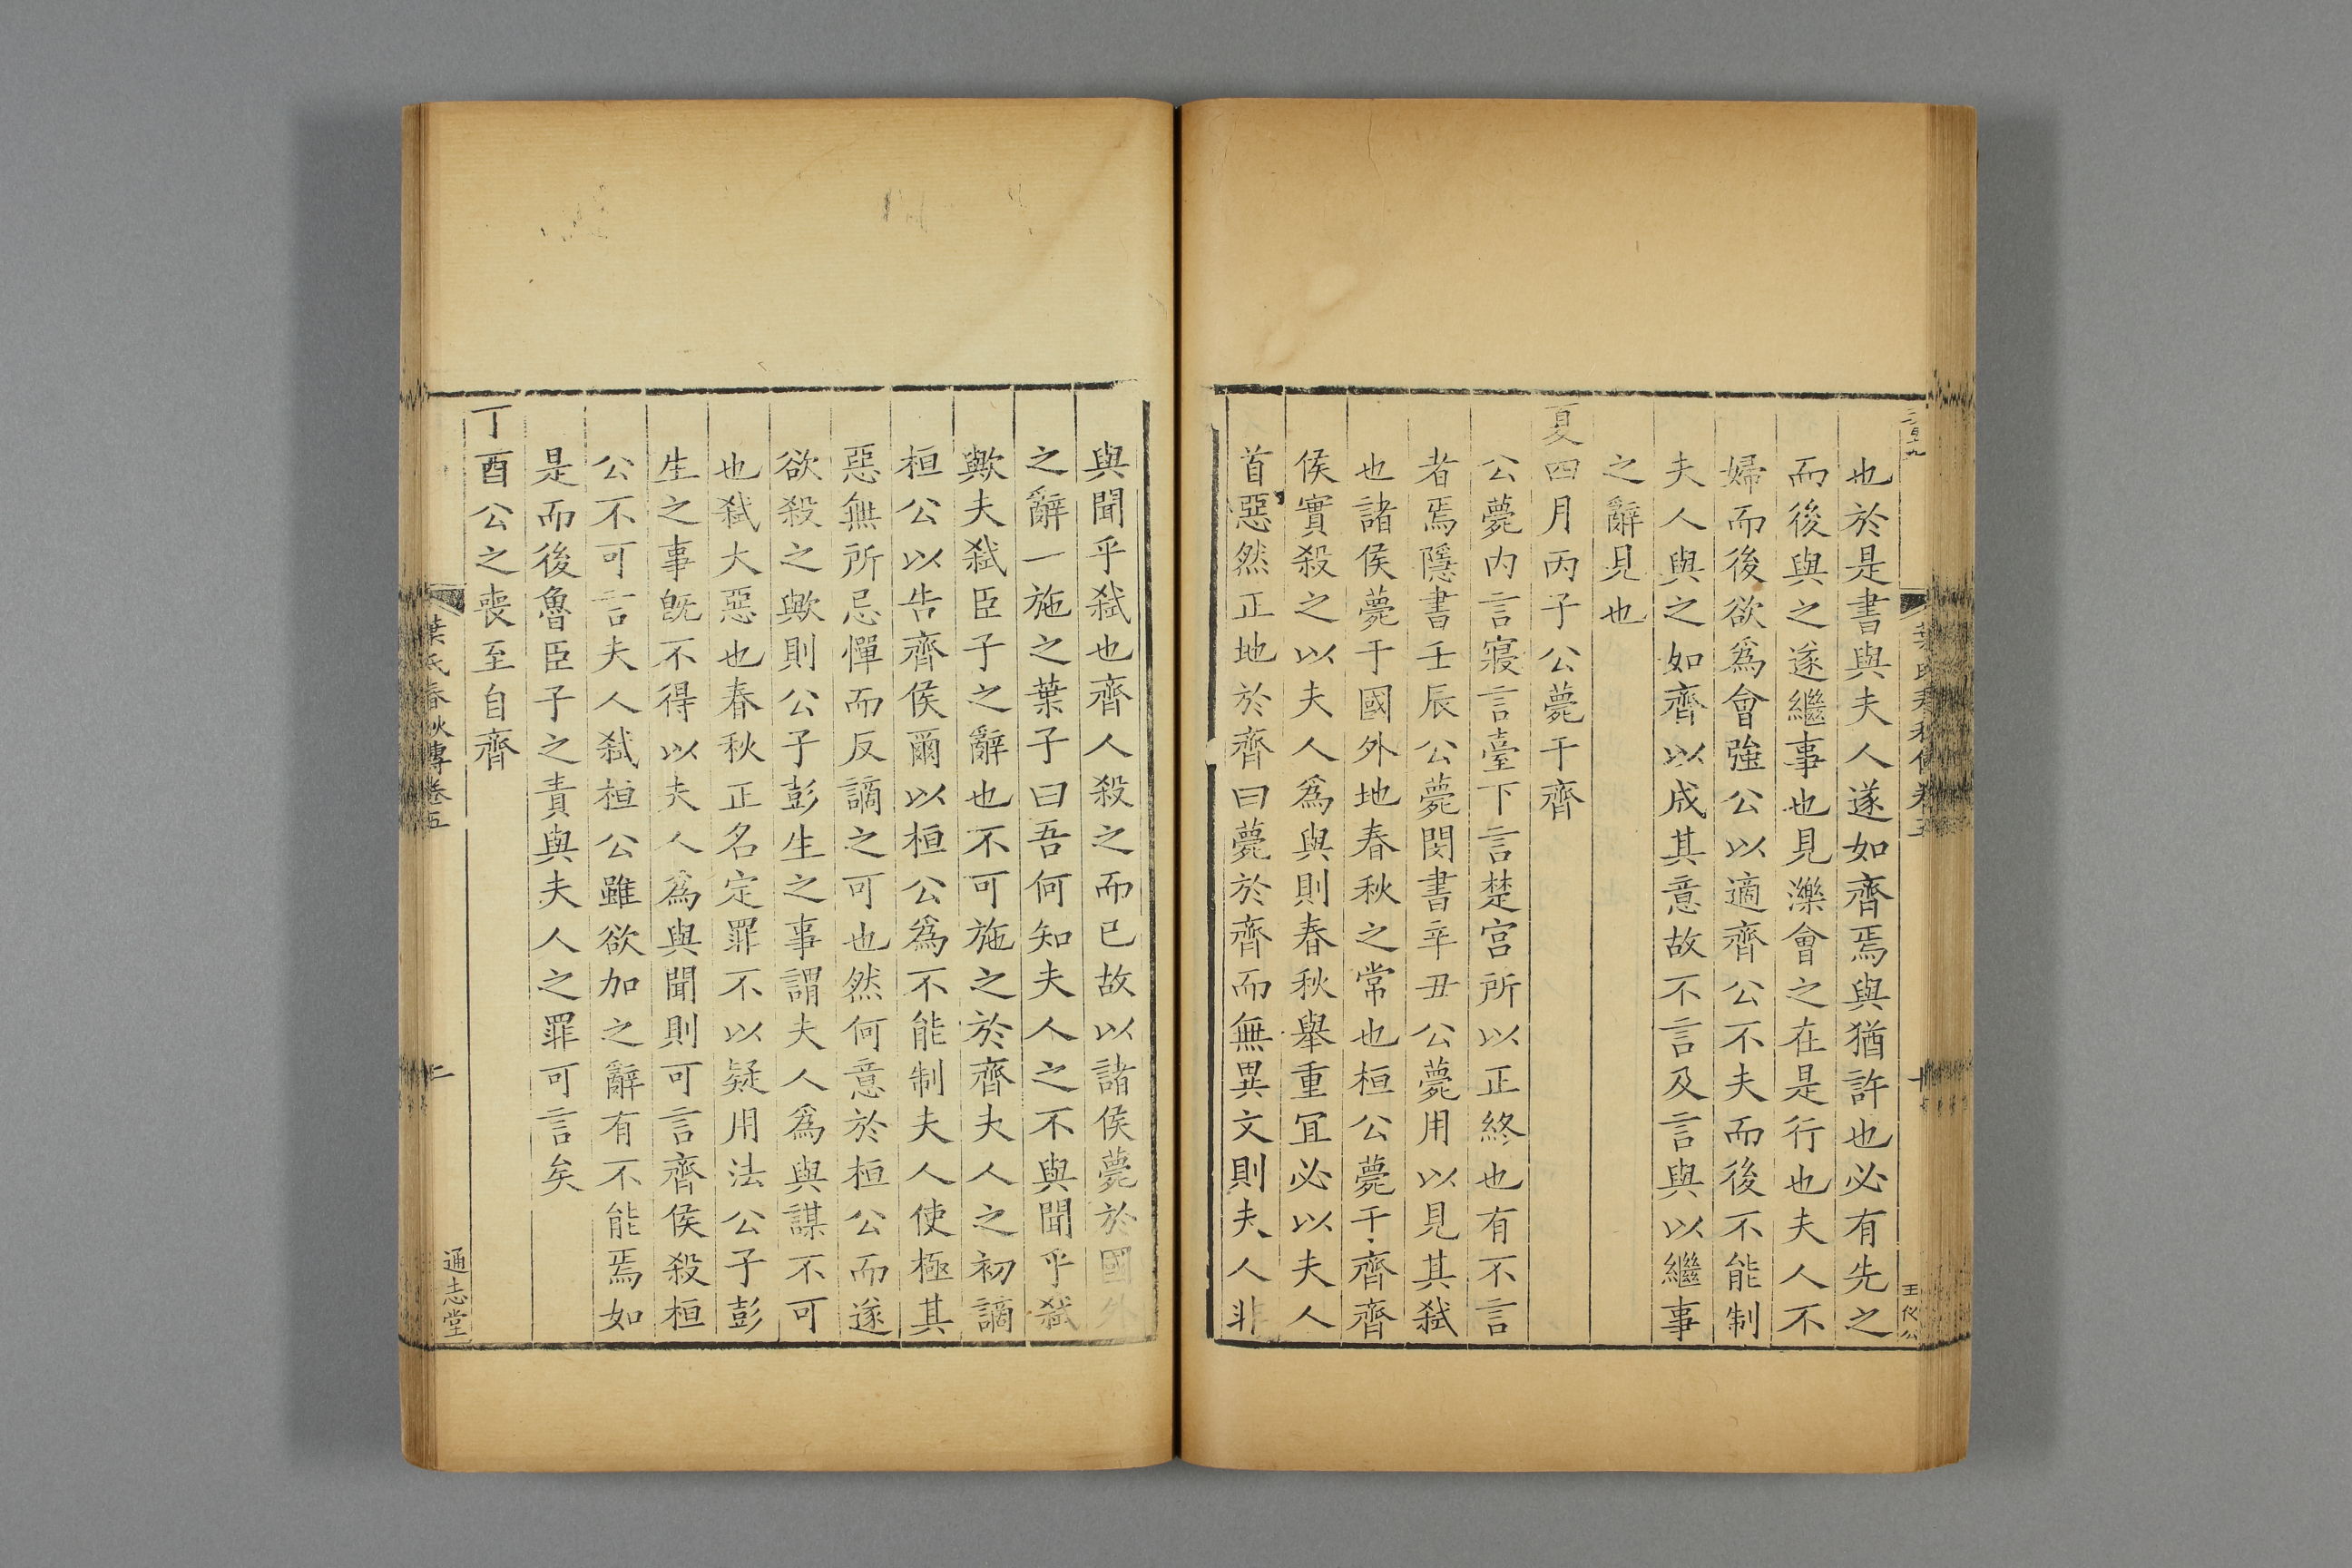 也於是書與夫人遂如齊焉與猶許也必有先之
而後與之遂繼事也見濼會之在是行也夫人不
婦而後欲爲會強公以適齊公不夫而後不能制
夫人與之如齊以成其意故不言及言與以繼事
之辭見也
夏四月丙子公薨于齊
公薨內言寢言臺下言楚宮所以正終也有不言
者焉隱書壬辰公薨閔書辛丑公薨用以見其弒
也諸侯薨于國外地春秋之常也桓公薨于齊齊
侯實殺之以夫人爲與則春秋舉重冝必以夫人
首惡然正地於齊曰薨於齊而無異文則夫人非
與聞乎弒也齊人殺之而已故以諸侯薨於國外
之辭一施之葉子曰吾何知夫人之不與聞乎弒
歟夫弒臣子之辭也不可施之於齊夫人之初謫
桓公以告齊侯爾以桓公爲不能制夫人使極其
惡無所忌憚而反謫之可也然何意於桓公而遂
欲殺之歟則公子彭生之事謂夫人爲與謀不可
也弒大惡也春秋正名定罪不以疑用法公子彭
生之事旣不得以夫人爲與聞則可言齊侯殺桓
公不可言夫人弒桓公雖欲加之辭有不能焉如
是而後魯臣子之責與夫人之罪可言矣
丁酉公之喪至自齊
葉氏春秋傳卷五
通志堂